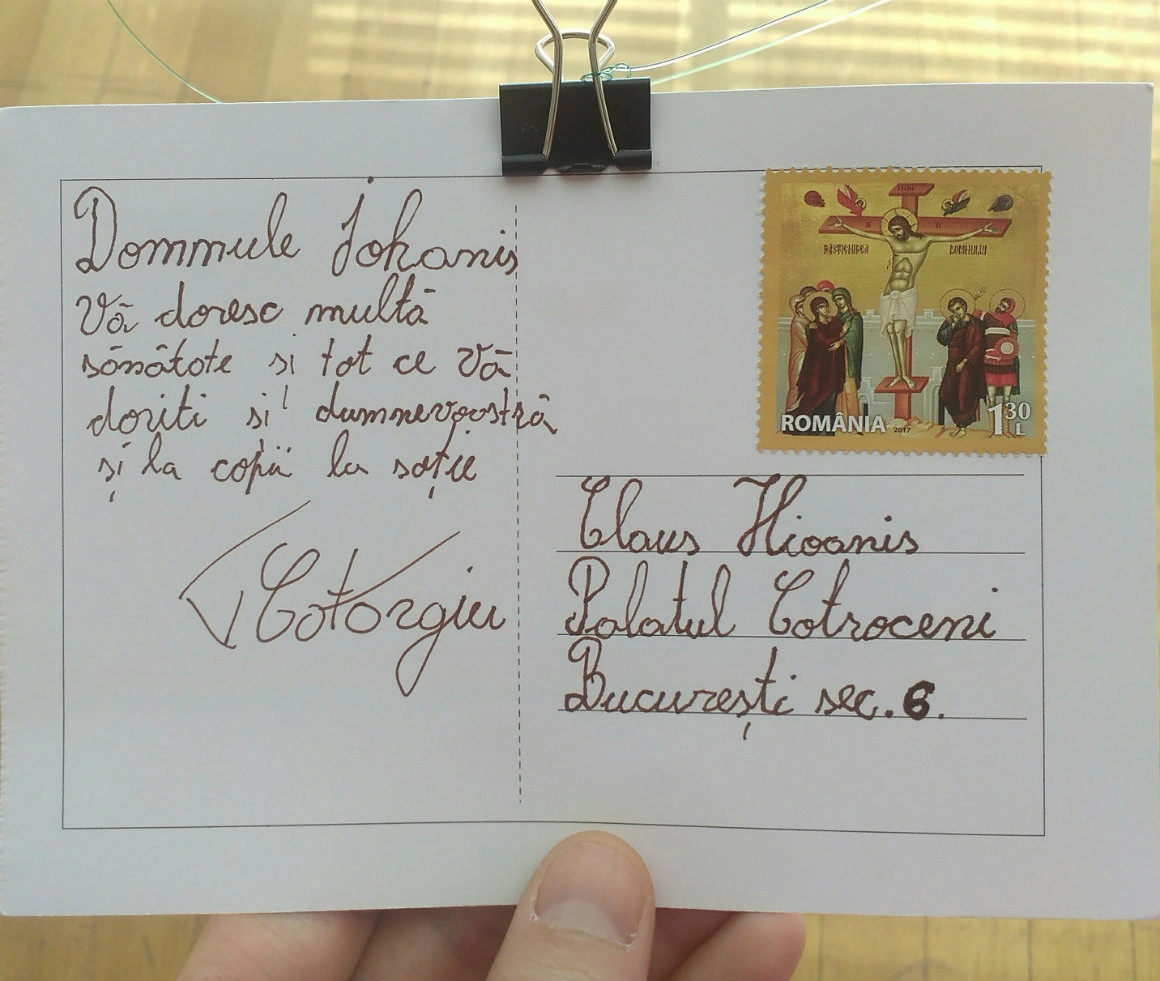 Dommule Iohanis
Vă doresc multă
sănătate si tot ce Vă
doriti si dumnevoastră
și la copii la soție
Cotorgiu
RĂSTIGNIREA DOMNULUI
ROMÂNIA 2017 1 30 L
Claus Hioanis
Palatul Cotroceni
București sec. 6.